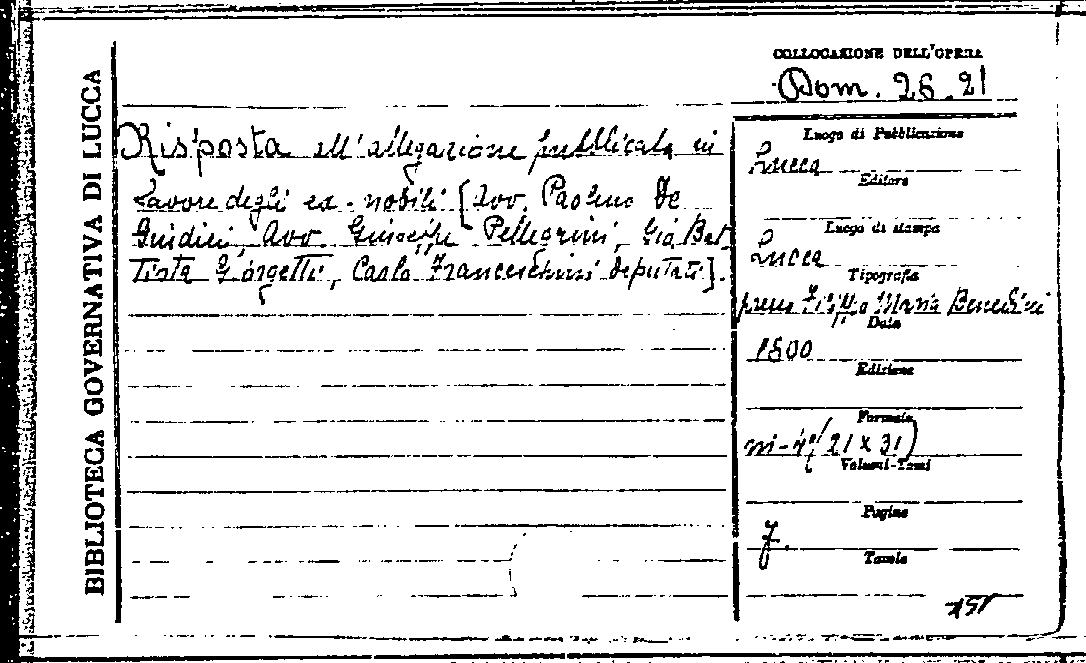 BIBLIOTECA GOVERNATIVA DI LUCCA
COLLOCAZIONE DELL'OPERA
Dom. 26.21
Risposta all'allegazione pubblicata in
favore degli ex-nobili [Avv. Paolino De
Giudici, Avv. Giuseppe Pellegrini, Gio Bat
tista Giorgetti, Carlo Franceschini deputati].
Luogo di Pubblicazione
Lucca
Editore
Luogo di stampa
Lucca
Tipografia
presso Filippo Maria Benedini
Data
1800
Edizione
Formato
in-4º (21 x 31)
Volumi-Tomi
Pagine
7.
Tavole